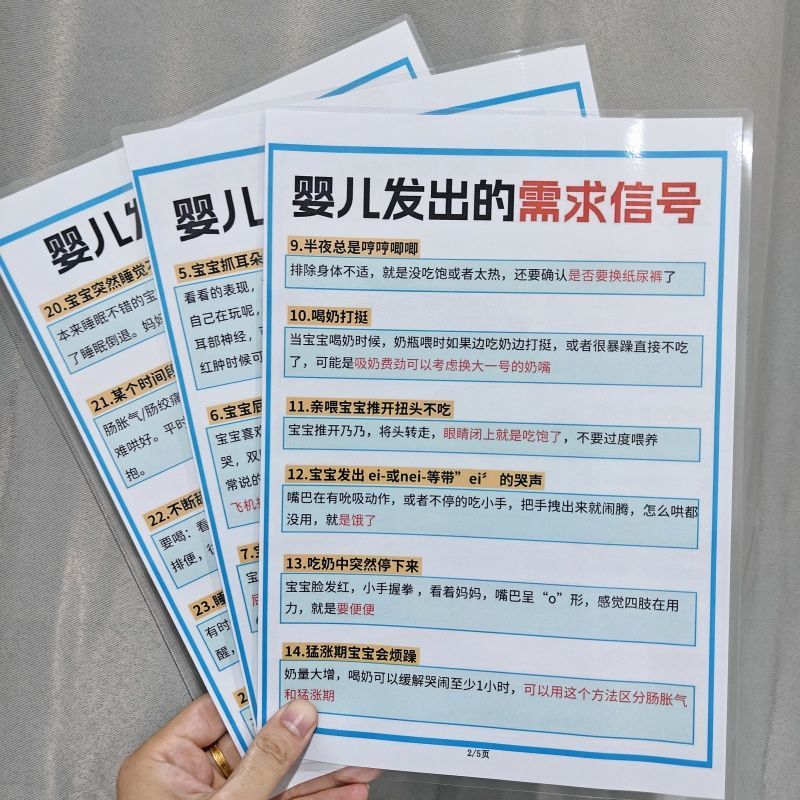 婴儿发
20.宝宝突然睡觉
本来睡眠不错的宝
了睡眠倒退。妈妈
21.某个时间段
肠胀气/肠绞痛
难哄好。平时
抱。
22.不断
要喝：看
排便，
23.睡
有时
醒，
2
婴儿
5.宝宝抓耳朵
看看的表现，
自己在玩呢，
耳部神经，
红肿时候可
6.宝宝
宝宝喜欢
哭，双
常说的
飞机
7.宝
宝
婴儿发出的需求信号
9.半夜总是哼哼唧唧
排除身体不适，就是没吃饱或者太热，还要确认是否要换纸尿裤了
10.喝奶打挺
当宝宝喝奶时候，奶瓶喂时如果边吃奶边打挺，或者很暴躁直接不吃
了，可能是吸奶费劲可以考虑换大一号的奶嘴
11.亲喂宝宝推开扭头不吃
宝宝推开乃乃，将头转走，眼睛闭上就是吃饱了，不要过度喂养
12.宝宝发出 ei-或nei-等带”ei〞 的哭声
嘴巴在有吮吸动作，或者不停的吃小手，把手拽出来就闹腾，怎么哄都
没用，就是饿了
13.吃奶中突然停下来
宝宝脸发红，小手握拳，看着妈妈，嘴巴呈“o”形，感觉四肢在用
力，就是要便便
14.猛涨期宝宝会烦躁
奶量大增，喝奶可以缓解哭闹至少1小时，可以用这个方法区分肠胀气
和猛涨期
2/5页